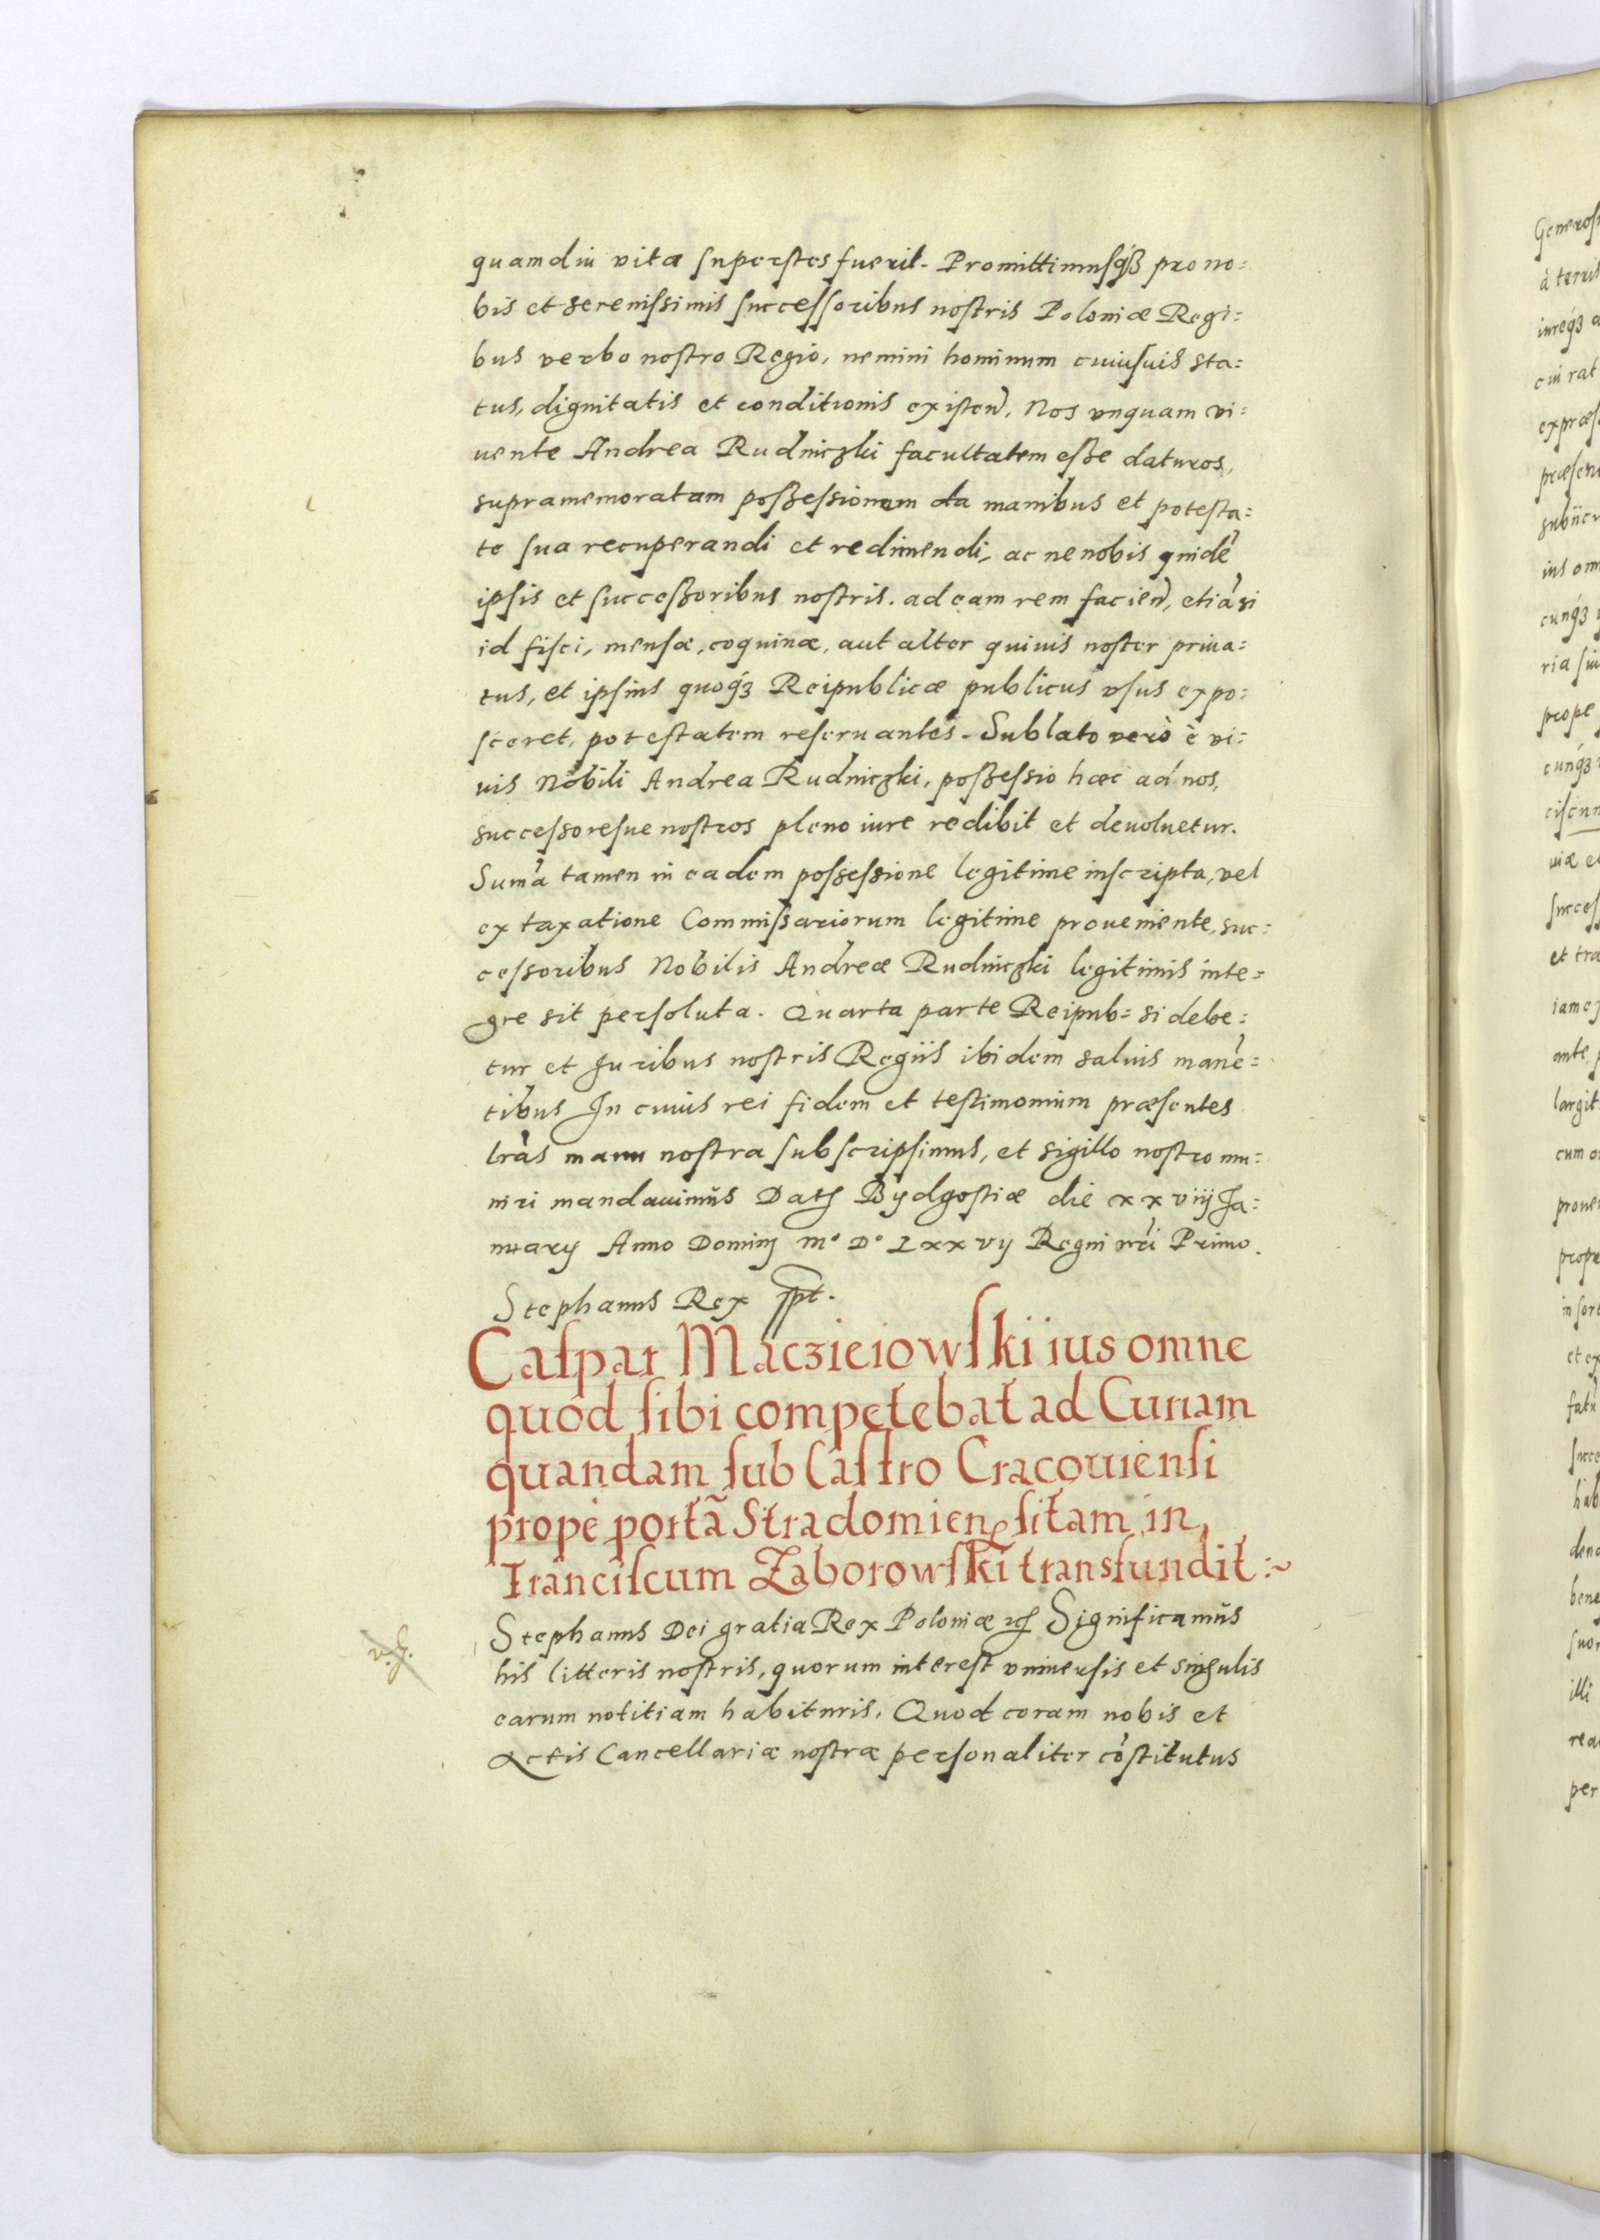 quamdiu vita superstes fuerit. Promittimusqȝ pro no=
bis et serenissimis successoribus nostris Poloniæ Regi=
bus verbo nostro Regio, nemini hominum cuiusuis sta=
tus, dignitatis et conditionis existeñ. Nos vnquam vi=
uente Andrea Rudniczki facultatem esse daturos,
supramemoratam possessionem da manibus et potesta=
te sua recuperandi et redimendi, ac ne nobis quidẽ
ipsis et successoribus nostris. ad eam rem facieñ, etiã si
id fisci, mensæ, coquinæ, aut alter quiuis noster priua=
tus, et ipsius quoqȝ Reipublicæ publicus vsus expo=
sceret, potestatem reseruantes. Sublato verò è vi=
uis Nobili Andrea Rudniczki, possessio hæc ad nos,
successoresue nostros pleno iure redibit et deuoluetur.
Sum̃a tamen in eadem possessione legitime inscripta, vel
ex taxatione Commissariorum legitime proueniente, suc=
cessoribus Nobilis Andreæ Rudniczki legitimis inte=
gre sit persoluta. Quarta parte Reipub= si debe=
tur et Juribus nostris Regiis ibidem saluis manẽ=
tibus In cuius rei fidem et testimonium præsentes
lrãs manu nostra subscripsimus, et sigillo nostro mu=
niri mandauimus Datꝭ Bydgostiæ die xxviij Ja=
nuarij Anno Dominj Mº Dº Lxxvij Regni nrĩ Primo.
Stephanus Rex sspt.
Caspar Macziejowski ius omne
quod sibi competebat ad Curiam
quandam sub Castro Cracouiensi
prope portã Stradomienꝭ sitam in
Franciscum Zaborowski transfundit:~
v.g.
Stephanus Dei gratia Rex Poloniæ ꝛcꝭ Significamus
his litteris nostris, quorum interest vniuersis et singulis
earum notitiam habituris. Quod coram nobis et
Actis Cancellariæ nostræ personaliter cõstitutus